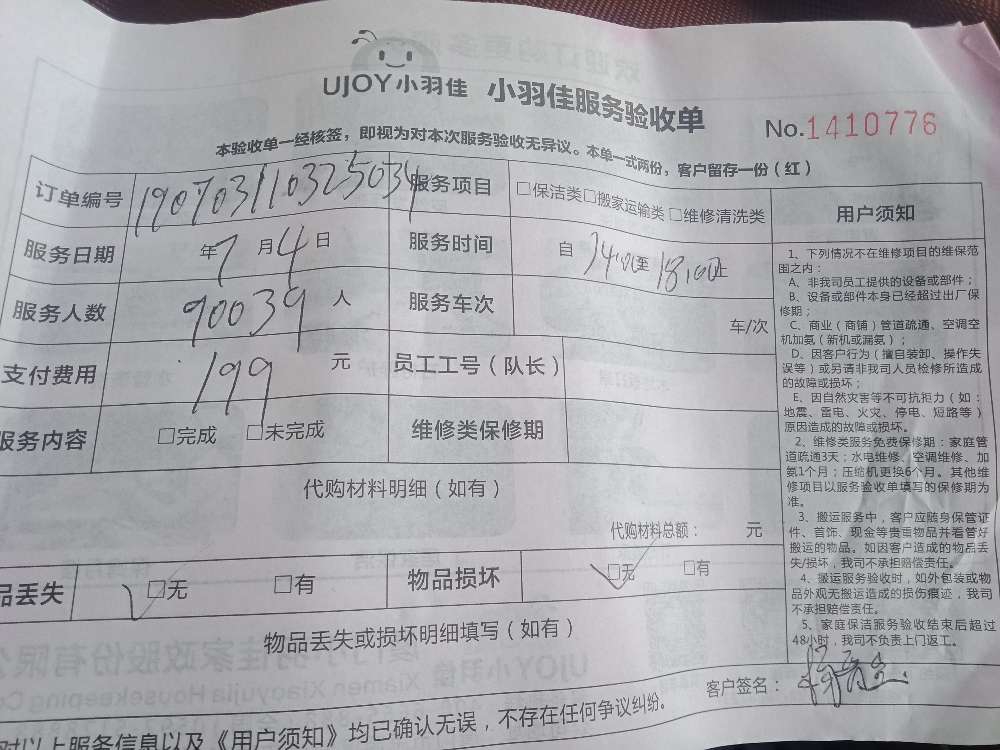 UJOY小羽佳 小羽佳服务验收单
No.1410776
本验收单一经核签，即视为对本次服务验收无异议。本单一式两份，客户留存一份（红）
订单编号 190703110325034 服务项目 □保洁类□搬家运输类 □维修清洗类
服务日期 年7月4日 服务时间 自14:00至18:00止
服务人数 90039人 服务车次 车/次
支付费用 199元 员工工号（队长）
服务内容 □完成 □未完成 维修类保修期
代购材料明细（如有）
代购材料总额： 元
品丢失 □无 □有 物品损坏 □无 □有
物品丢失或损坏明细填写（如有）
用户须知
1、下列情况不在维修项目的维保范
围之内：
A、非我司员工提供的设备或部件；
B、设备或部件本身已经超过出厂保
修期；
C、商业（商铺）管道疏通、空调空
机加氨（新机或漏氨）；
D、因客户行为（擅自装卸、操作失
误等）或另请非我司人员检修所造成
的故障或损坏；
E、因自然灾害等不可抗拒力（如：
地震、雷电、火灾、停电、短路等）
原因造成的故障或损坏。
2、维修类服务免费保修期：家庭管
道疏通3天；水电维修、空调维修、加
氨1个月；压缩机更换6个月。其他维
修项目以服务验收单填写的保修期为
准。
3、搬运服务中，客户应随身保管证
件、首饰、现金等贵重物品并看管好
搬运的物品。如因客户造成的物品丢
失/损坏，我司不承担赔偿责任。
4、搬运服务验收时，如外包装或物
品外观无搬运造成的损伤痕迹，我司
不承担赔偿责任。
5、家庭保洁服务验收结束后超过
48小时，我司不负责上门返工。
客户签名：
对以上服务信息以及《用户须知》均已确认无误，不存在任何争议纠纷。